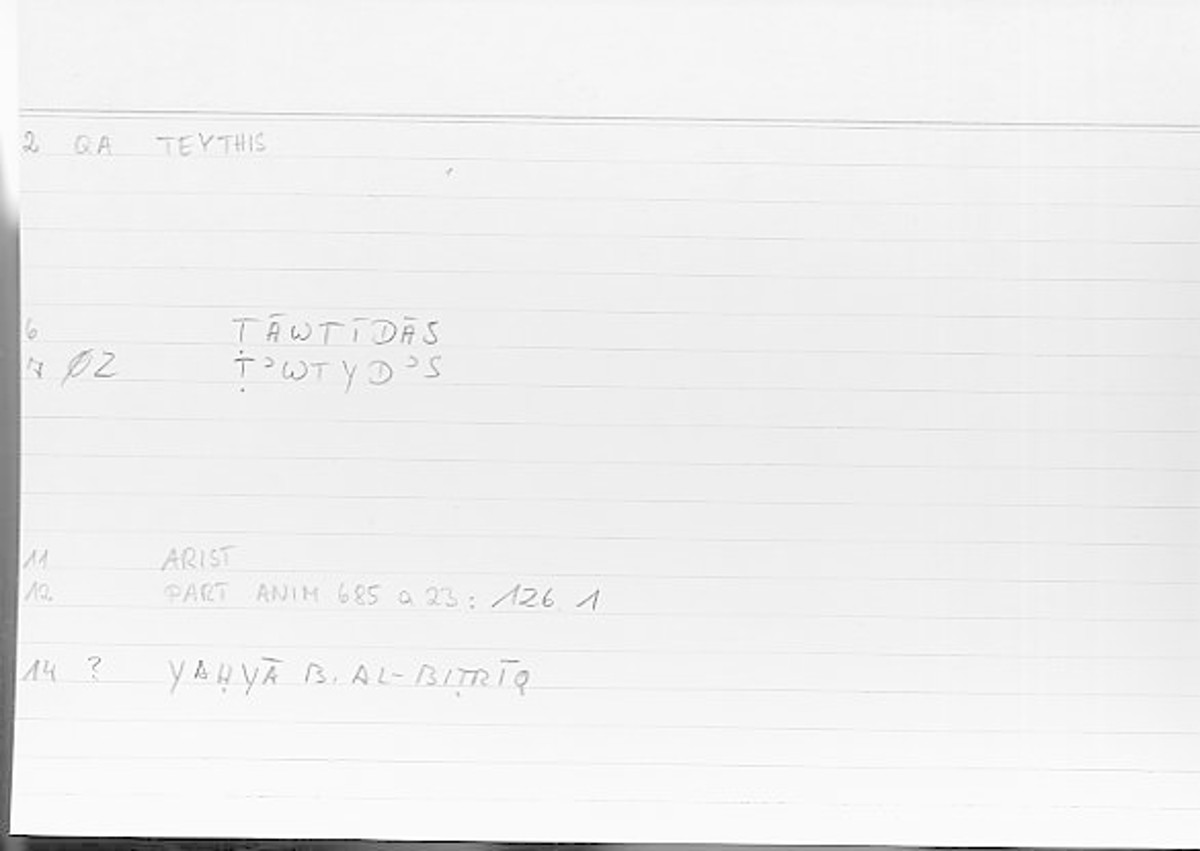 2 QA TEYTHIS
6 ṬĀWTĪDĀS
7 ØZ Ṭʾ WTYDʾS
11 ARIST
12 PART ANIM 685 a 23: 126 1
14 ? YAḤYĀ B. AL-BIṬRĪQ